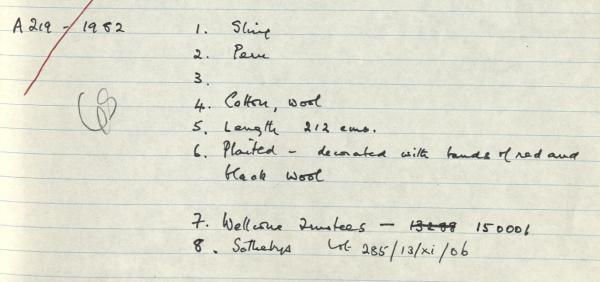 A 219 - 1982
1. Sling
2. Peru
3.
4. Cotton, wool
5. Length 212 cms.
6. Plaited - decorated with bands of red and
black wool
7. Wellcome Trustees - 13288 150001
8. Sothebys Lot 285/13/xi/06
68